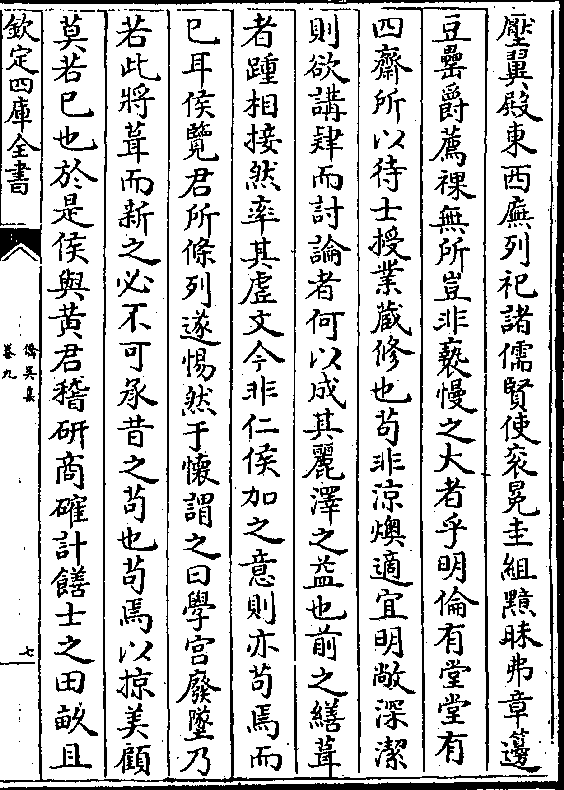 壓翼殿東西廡列祀諸儒賢使衮冕圭組黯昧弗章籩
豆罍爵薦祼無所豈非褻慢之大者乎明倫有堂堂有
四齋所以待士授業蔵修也苟非涼燠適宜明敞深潔
則欲講肄而討論者何以成其麗澤之益也前之繕葺
者踵相接然率其虛文今非仁侯加之意則亦苟焉而
已耳侯覽君所條列遂惕然于懷謂之曰學宮廢墜乃
若此將葺而新之必不可承昔之苟也苟焉以掠美顧
莫若已也於是侯與黃君稽研商確計饍士之田畝且
欽定四庫全書
僑吳集
卷九
七